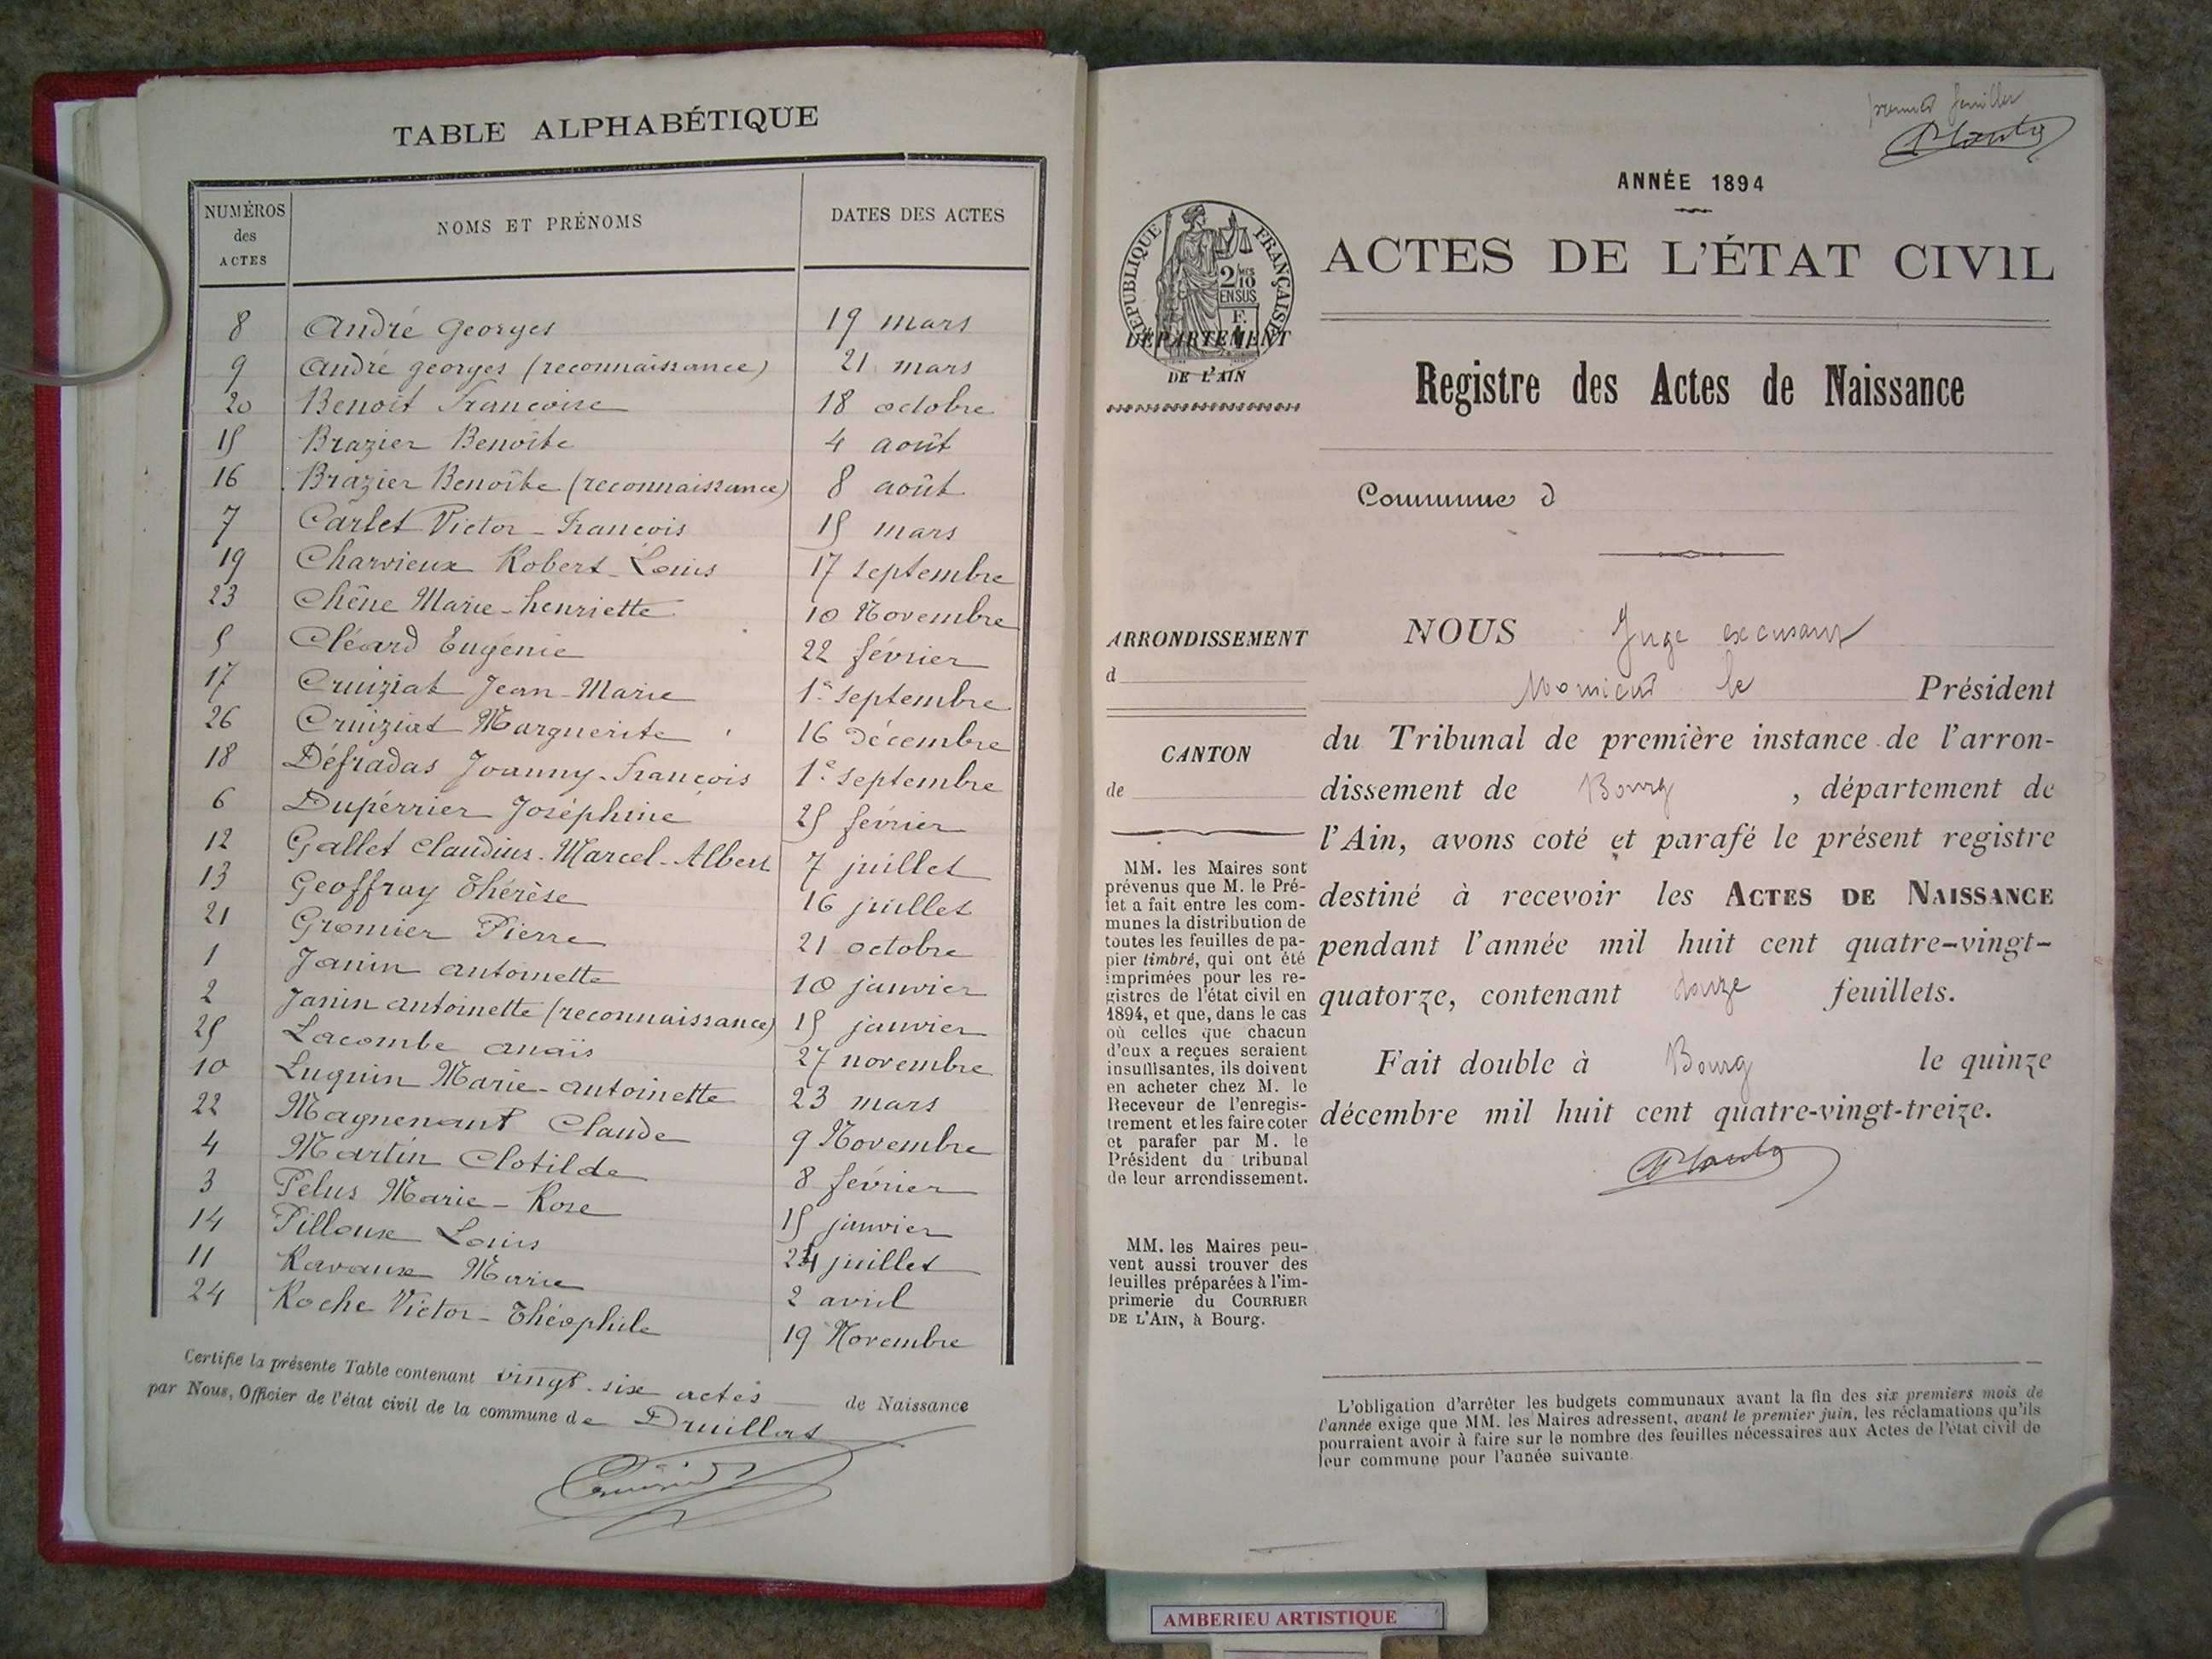 TABLE ALPHABÉTIQUE
NUMÉROS des ACTES NOMS ET PRÉNOMS DATES DES ACTES
8 André Georges 19 mars
9 André georges (reconnaissance) 21 mars
20 Benoit Francoise 18 octobre
15 Brazier Benoîte 4 août
16 Brazier Benoîte (reconnaissance) 8 août
7 Carlet Victor-Francois 15 mars
19 Charvieux Robert-Louis 17 septembre
23 Chêne Marie-henriette 10 Novembre
5 Cléard Eugénie 22 février
17 Cruiziat Jean-Marie 1er septembre
26 Cruiziat Marguerite 16 Décembre
18 Défradas Joanny-François 1er septembre
6 Dupérrier Joséphine 25 février
12 Gallet Claudius-Marcel-Albert 7 juillet
13 Geoffray Thérèse 16 juillet
21 Gromier Pierre 21 octobre
1 Janin antoinette 10 janvier
2 Janin antoinette (reconnaissance) 15 janvier
25 Lacombe anaïs 27 novembre
10 Luquin Marie-antoinette 23 mars
22 Magnenant Claude 9 Novembre
4 Martin Clotilde 8 février
3 Pelus Marie-Rose 15 janvier
14 Pilloux Louis 24 juillet
11 Ravaux Marie 2 avril
24 Roche Victor-Théophile 19 Novembre
Certifie la présente Table contenant vingt-six actes de Naissance
par Nous, Officier de l'état civil de la commune de Druillat
premier feuillet
ANNÉE 1894
RÉPUBLIQUE FRANÇAISE
2/10 EN SUS
DÉPARTEMENT
DE L'AIN
ACTES DE L'ÉTAT CIVIL
Registre des Actes de Naissance
Commune d
ARRONDISSEMENT
d
CANTON
de
MM. les Maires sont
prévenus que M. le Pré-
fet a fait entre les com-
munes la distribution de
toutes les feuilles de pa-
pier timbré, qui ont été
imprimées pour les re-
gistres de l'état civil en
1894, et que, dans le cas
où celles que chacun
d'eux a reçues seraient
insuffisantes, ils doivent
en acheter chez M. le
Receveur de l'enregis-
trement et les faire coter
et parafer par M. le
Président du tribunal
de leur arrondissement.
MM. les Maires peu-
vent aussi trouver des
feuilles préparées à l'im-
primerie du COURRIER
DE L'AIN, à Bourg.
NOUS Juge
Monsieur le Président
du Tribunal de première instance de l'arron-
dissement de Bourg , département de
l'Ain, avons coté et parafé le présent registre
destiné à recevoir les ACTES DE NAISSANCE
pendant l'année mil huit cent quatre-vingt-
quatorze, contenant douze feuillets.
Fait double à Bourg le quinze
décembre mil huit cent quatre-vingt-treize.
L'obligation d'arrêter les budgets communaux avant la fin des six premiers mois de
l'année exige que MM. les Maires adressent, avant le premier juin, les réclamations qu'ils
pourraient avoir à faire sur le nombre des feuilles nécessaires aux Actes de l'état civil de
leur commune pour l'année suivante.
AMBERIEU ARTISTIQUE